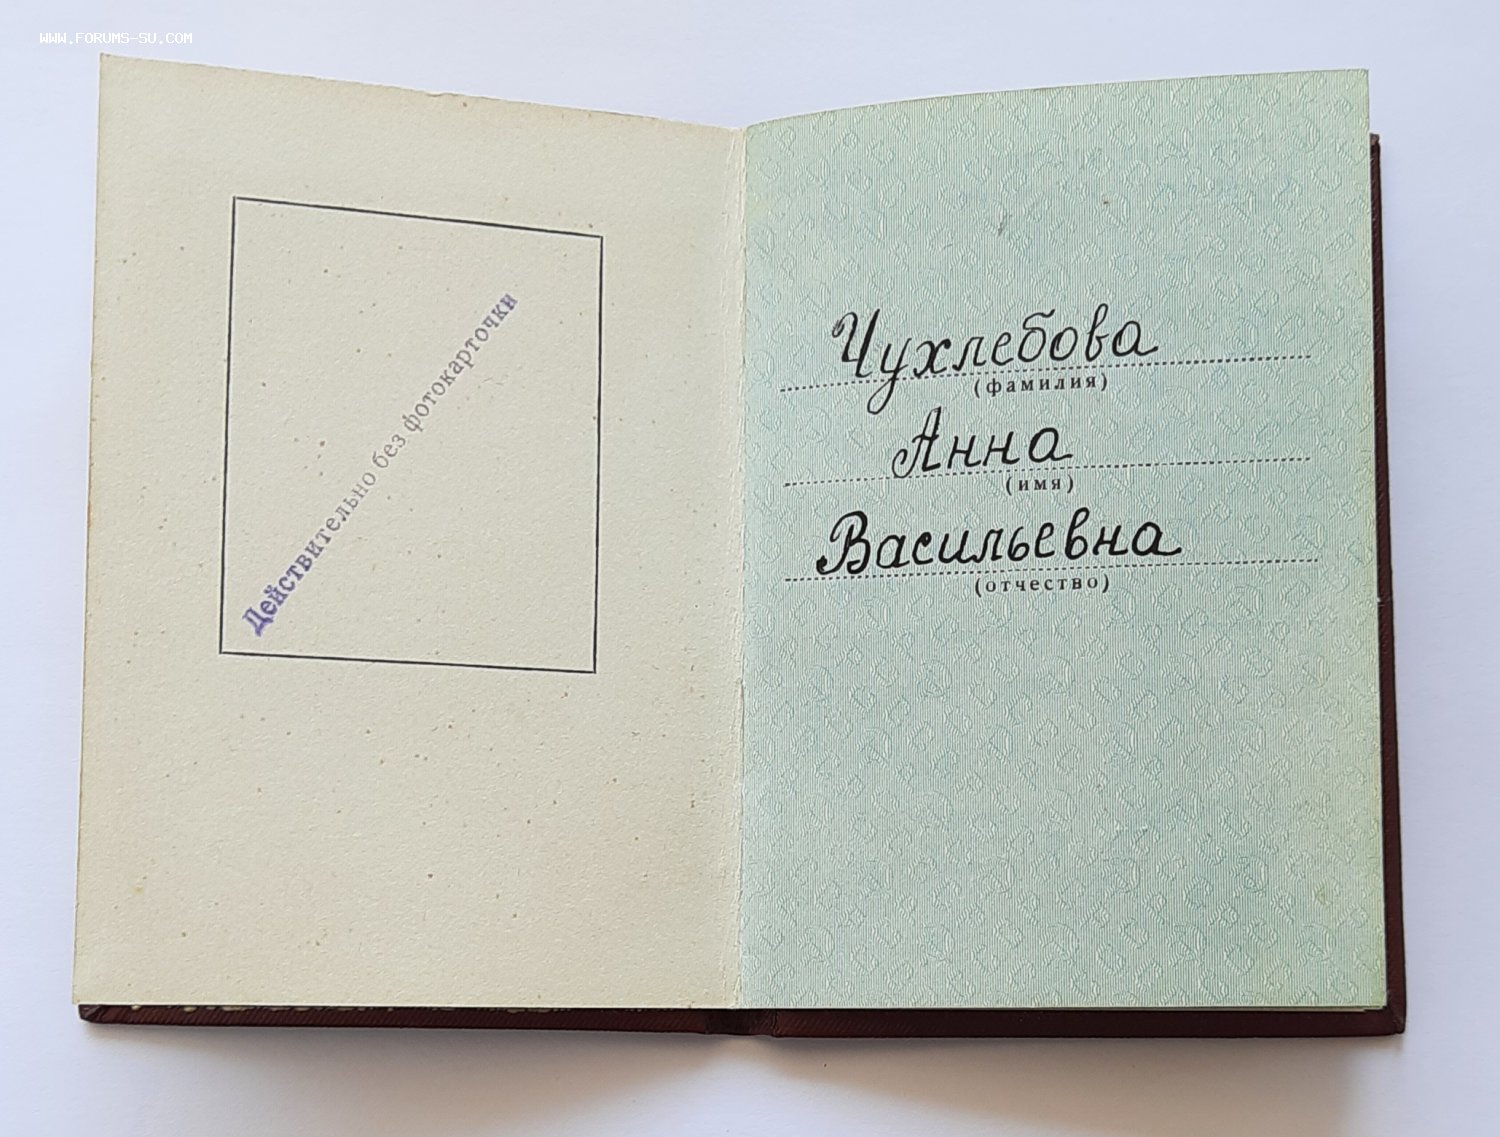 WWW.FORUMS-SU.COM
Действительно без фотокарточки
Чухлебова
(фамилия)
Анна
(имя)
Васильевна
(отчество)